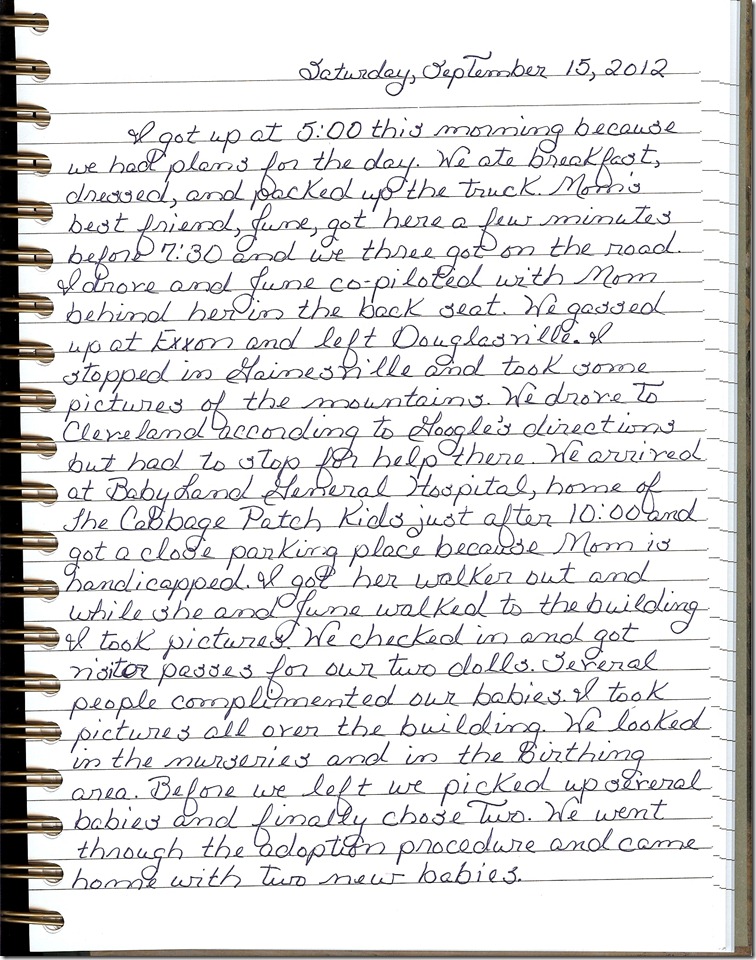 Saturday, September 15, 2012
I got up at 5:00 this morning because
we had plans for the day. We ate breakfast,
dressed, and packed up the truck. Mom's
best friend, June, got here a few minutes
before 7:30 and we three got on the road.
I drove and June co-piloted with Mom
behind her in the back seat. We gassed
up at Exxon and left Douglasville. I
stopped in Gainesville and took some
pictures of the mountains. We drove to
Cleveland according to Google's directions
but had to stop for help there. We arrived
at BabyLand General Hospital, home of
the Cabbage Patch Kids just after 10:00 and
got a close parking place because Mom is
handicapped. I got her walker out and
while she and June walked to the building
I took pictures. We checked in and got
visitor passes for our two dolls. Several
people complimented our babies. I took
pictures all over the building. We looked
in the nurseries and in the Birthing
area. Before we left we picked up several
babies and finally chose two. We went
through the adoption procedure and came
home with two new babies.